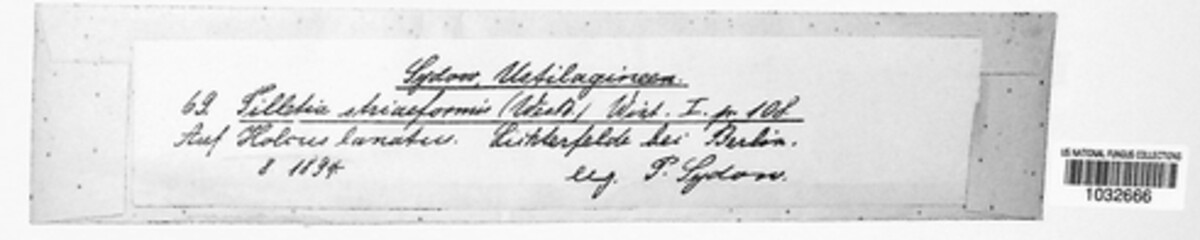 Sydow, Ustilagineen.
69. Tilletia striaeformis (Westd.) Wint. I. p. 108.
Auf Holcus lanatus. Lichterfelde bei Berlin.
8 1894
leg. P. Sydow.
US NATIONAL FUNGUS COLLECTIONS
1032666